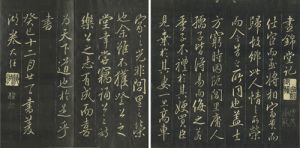 晝錦堂記
仕宦而至將相富貴而
歸故鄉此人情之所榮
而今昔之所同也蓋士
方窮時困阨閭里庸人
孺子皆得易而侮之若
季子不禮於其嫂買臣
見棄於其妻一旦高車
家之光非閭里之榮
也余雖不獲登公之
堂幸嘗竊誦公之詩
樂公之志有成而喜
為天下道也於是乎
書
癸巳十一月廿書